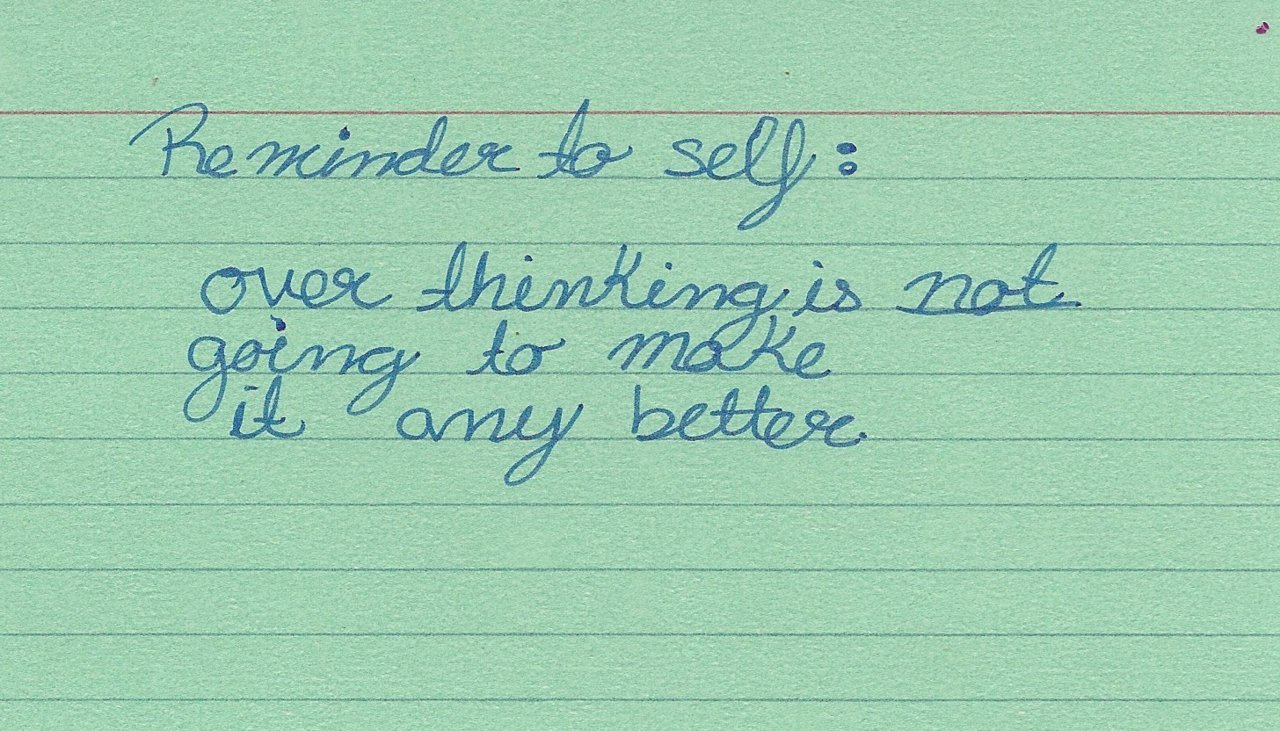 Reminder to self:
over thinking is not
going to make
it any better.